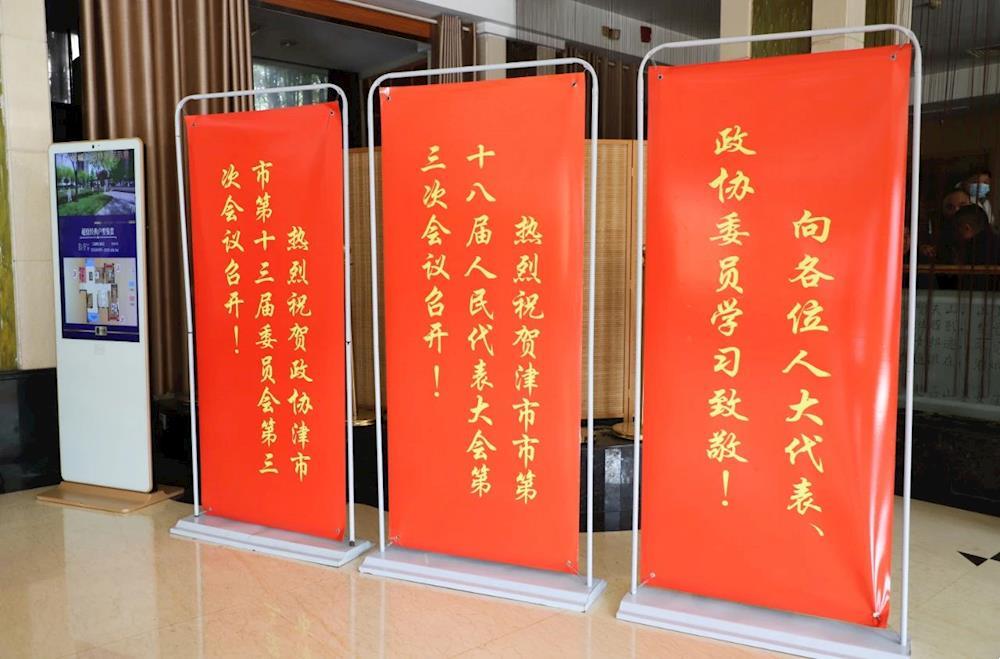 热烈祝贺政协津市
市第十三届委员会第三
次会议召开！
热烈祝贺津市市第
十八届人民代表大会第
三次会议召开！
向各位人大代表、
政协委员学习致敬！